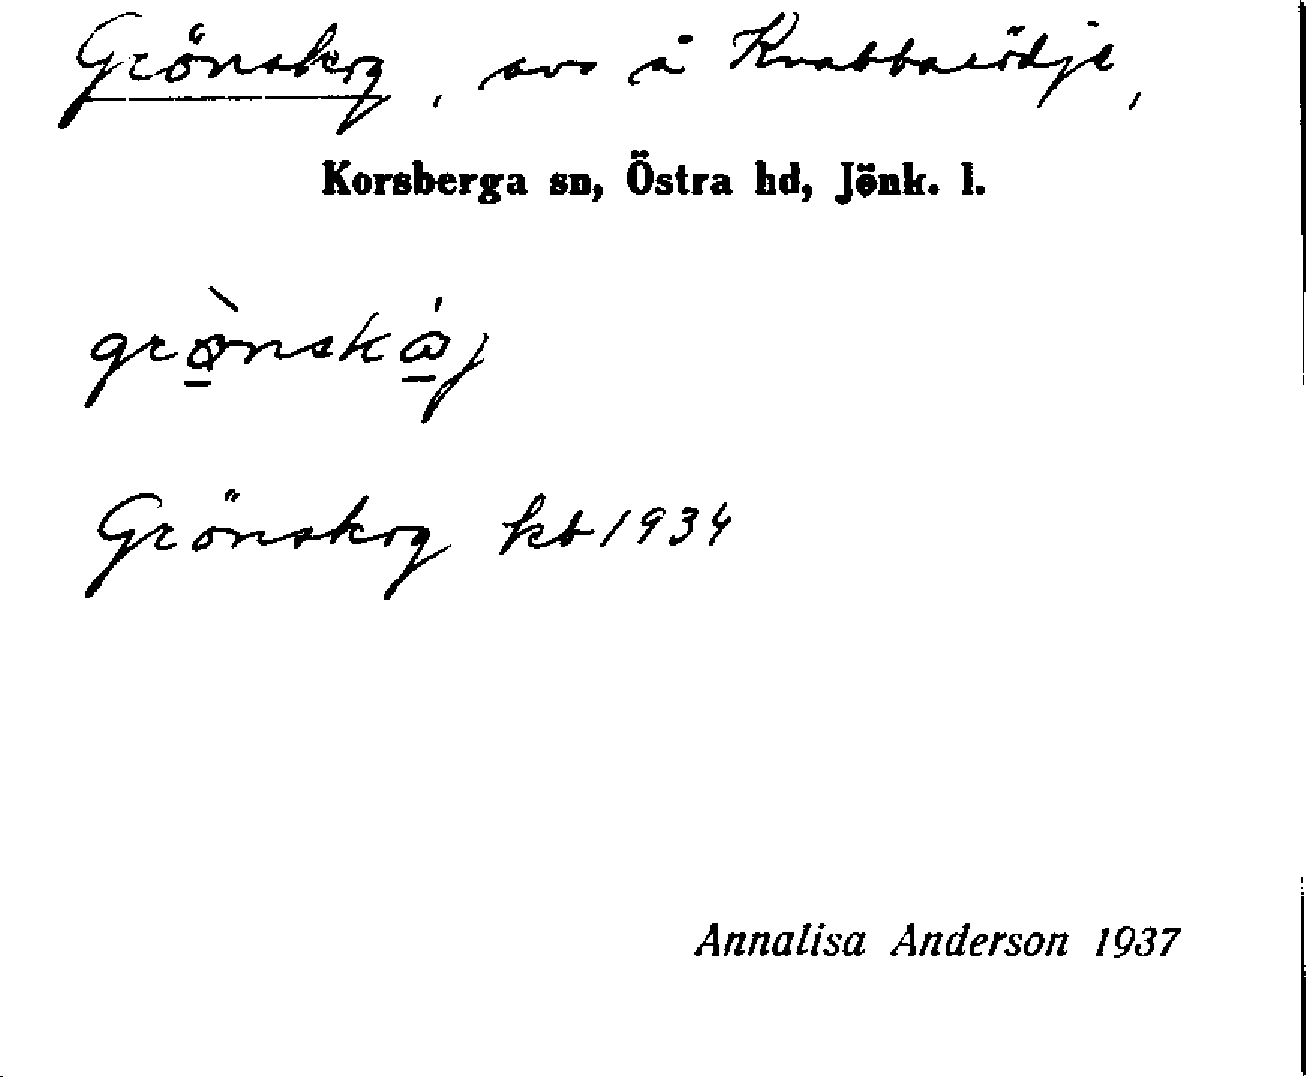 Grönskog, avs å Knabbarödje,
Korsberga sn, Östra hd, Jönk. l.
Grönskog kb 1934
Annalisa Anderson 1937